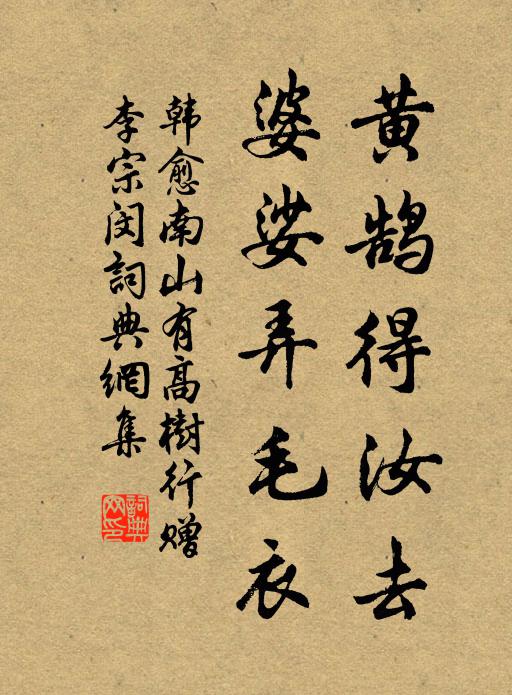 黃鹄得汝去
婆娑弄毛衣
韩愈南山有高樹行赠
李宗闵詞典網集
詞典网印